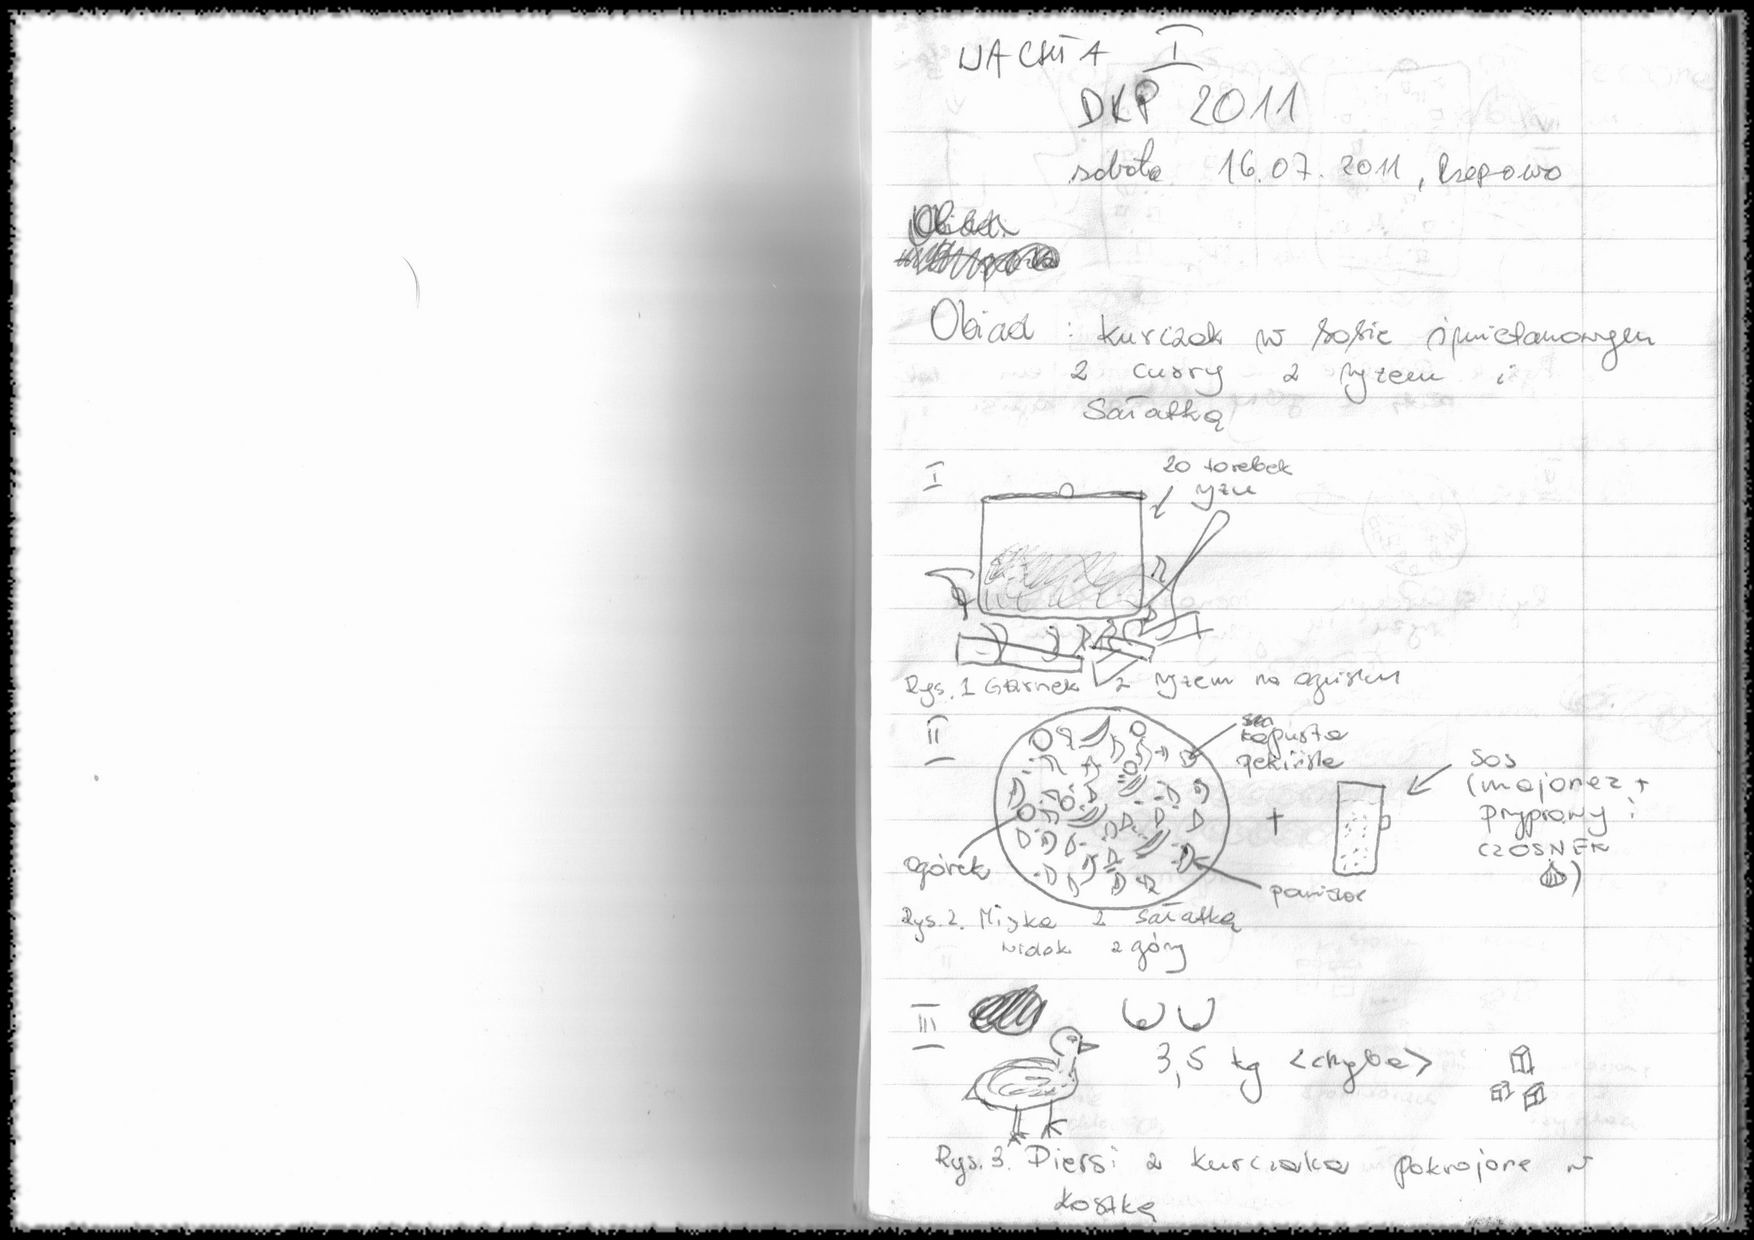 WACHTA I
DKP 2011
sobota 16.07.2011, Rzepowo
Obiad : kurczak w sosie śmietanowym
z curry z ryżem i
Sałatką
I
20 torebek
ryżu
Rys. 1 Garnek z ryżem na ognisku
II
kapusta
pekińska
sos
(majonez +
przyprawy i
CZOSNEK
)
+
ogórek
pomidor
Rys. 2. Miska z Sałatką
widok z góry
III
3,5 kg <chyba>
Rys. 3. Piersi z kurczaka pokrojone w
kostkę